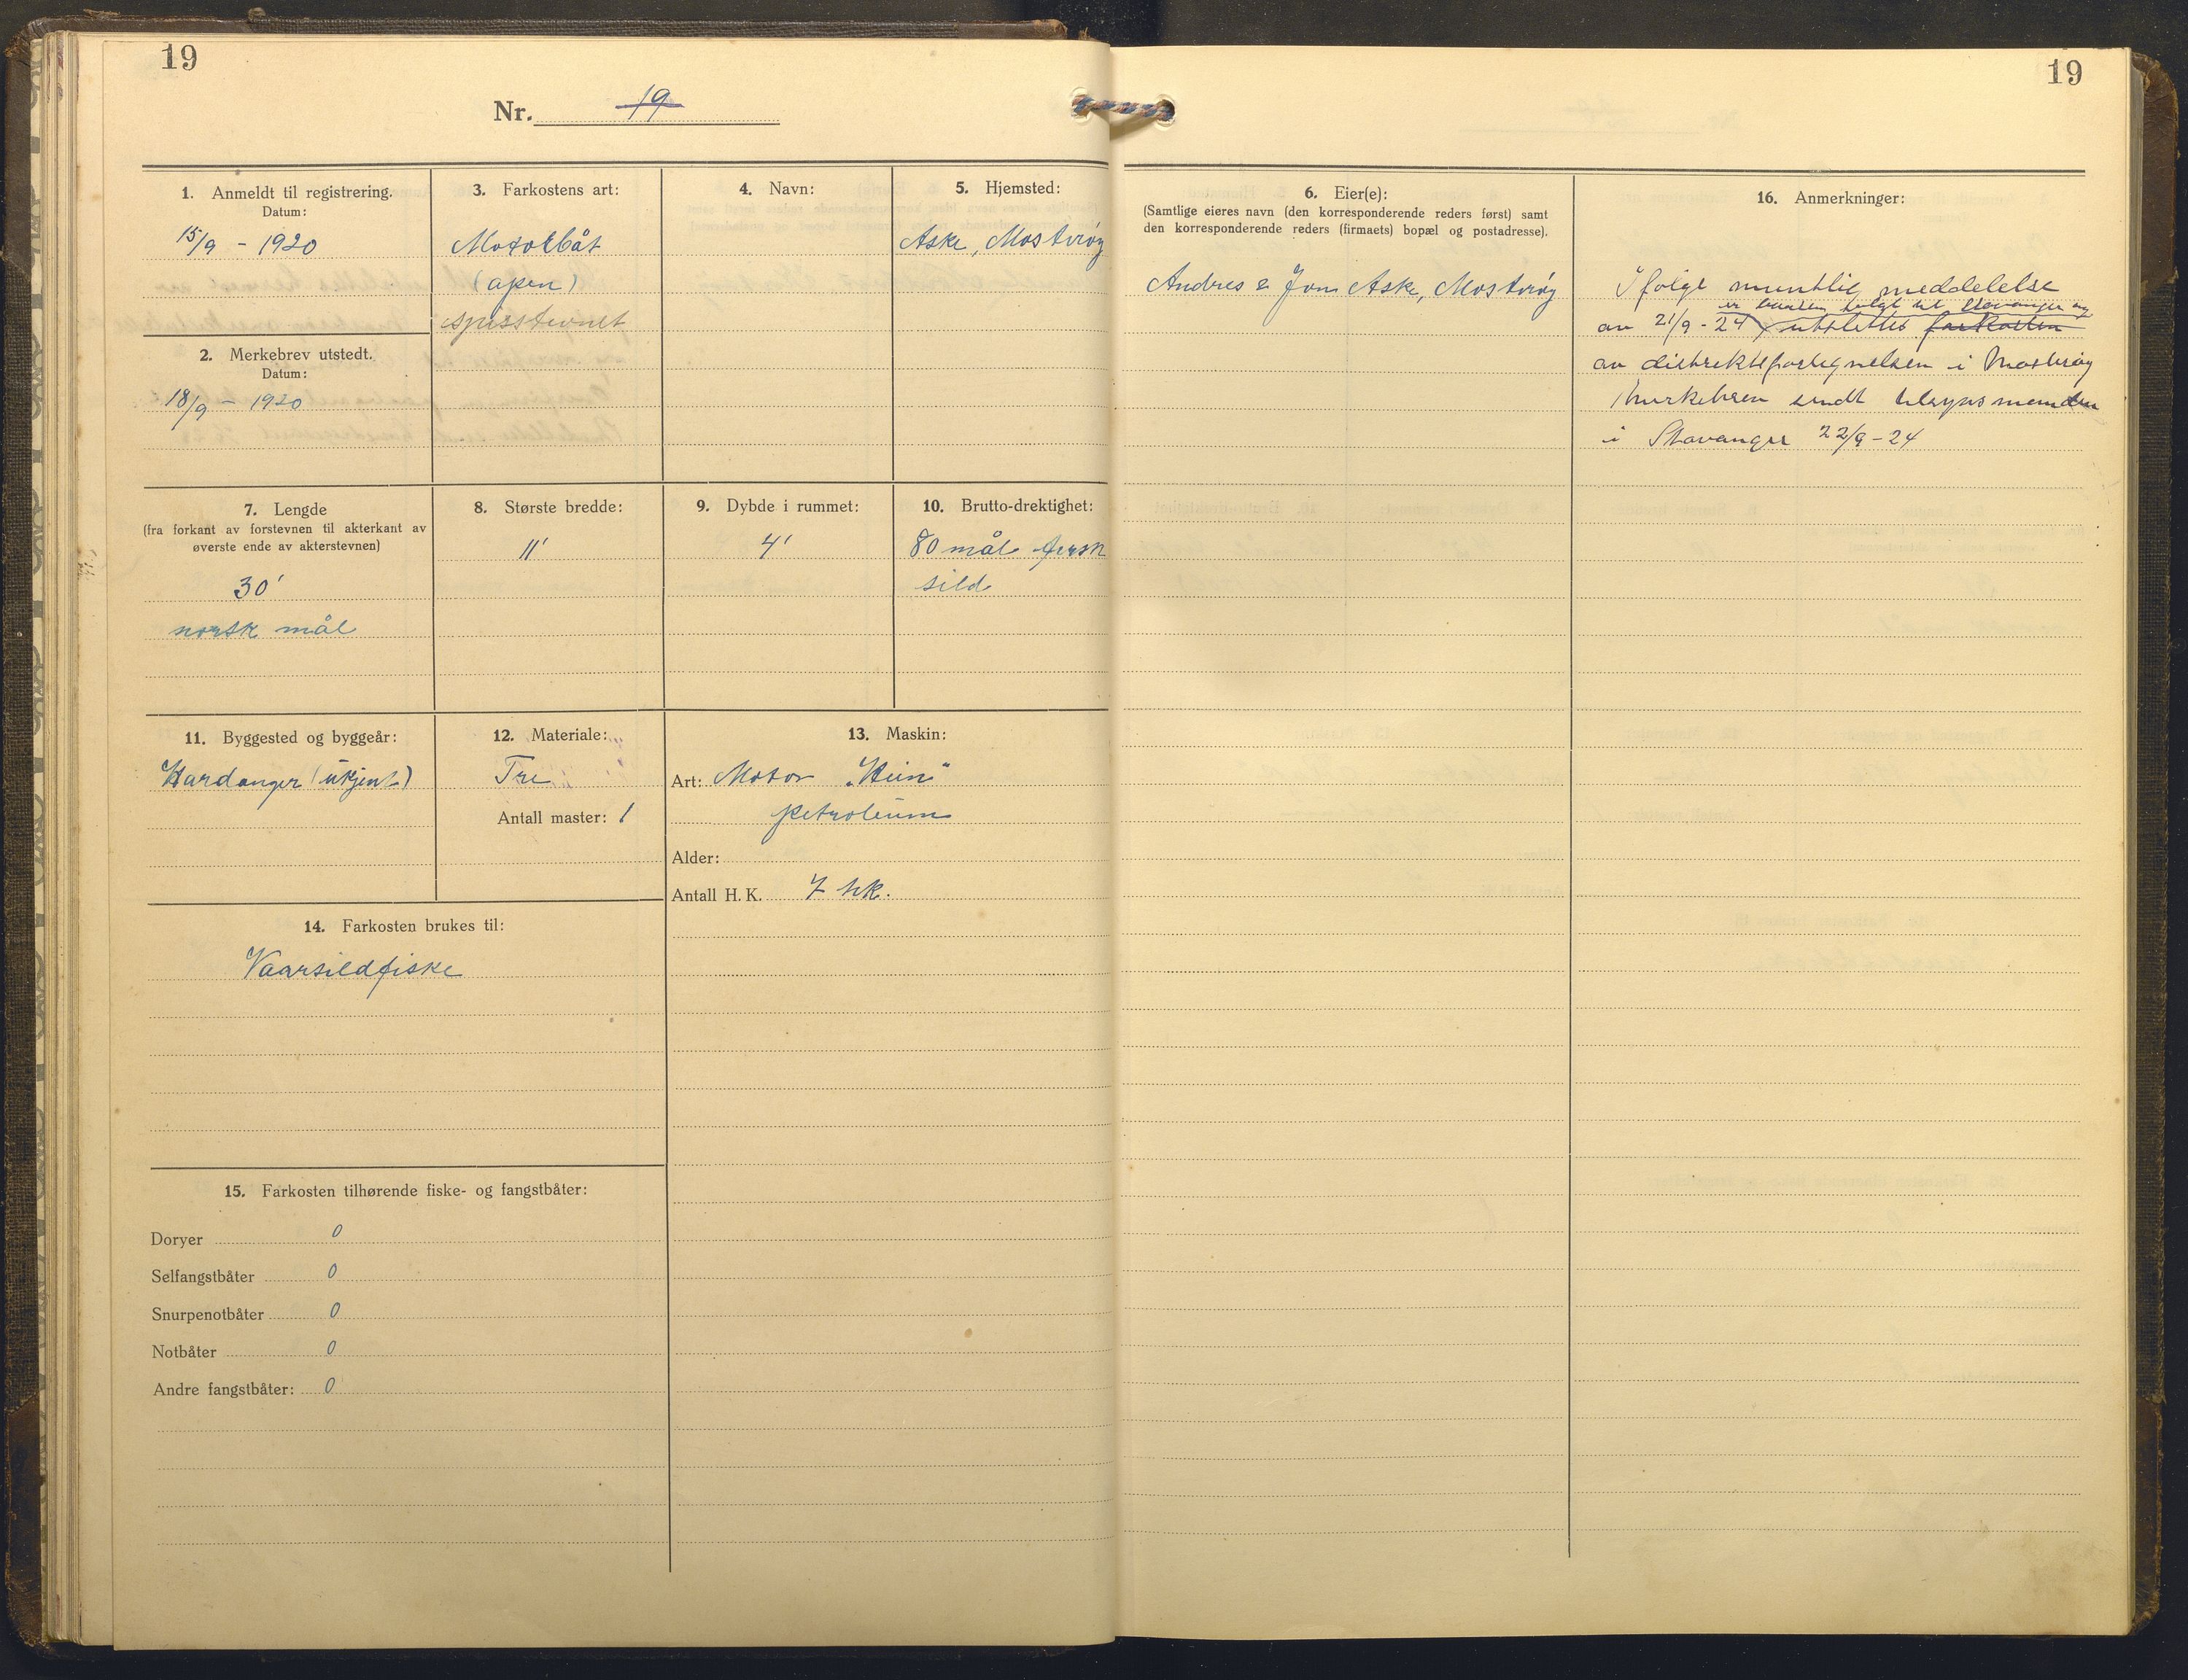 19
Nr. 19
1. Anmeldt til registrering.
Datum:
15/9 - 1920
2. Merkebrev utstedt.
Datum:
18/9 - 1920
3. Farkostens art:
Motorbåt
(åpen)
spisstevnet
4. Navn:
5. Hjemsted:
Aske, Mosterøy
7. Lengde
(fra forkant av forstevnen til akterkant av
øverste ende av akterstevnen)
30'
norsk mål
8. Største bredde:
11'
9. Dybde i rummet:
4'
10. Brutto-drektighet:
80 mål fersk
sild
11. Byggested og byggeår:
Hardanger (ukjent)
12. Materiale:
Tre
Antall master: 1
13. Maskin:
Art: Motor "Hein"
petroleum
Alder:
Antall H. K. 7 hk.
14. Farkosten brukes til:
Vaarsildfiske
15. Farkosten tilhørende fiske- og fangstbåter:
Doryer 0
Selfangstbåter 0
Snurpenotbåter 0
Notbåter 0
Andre fangstbåter: 0
19
6. Eier(e):
(Samtlige eieres navn (den korresponderende reders først) samt
den korresponderende reders (firmaets) bopæl og postadresse).
Andres & Jon Aske, Mosterøy
16. Anmerkninger:
Ifølge muntlig meddelelse
er baaten solgt til Stavanger og
av 21/9 - 24 utslettes farkosten
av distriktsfortegnelsen i Mosterøy
Merkebrev sendt tilsynsmanden
i Stavanger 22/9 - 24